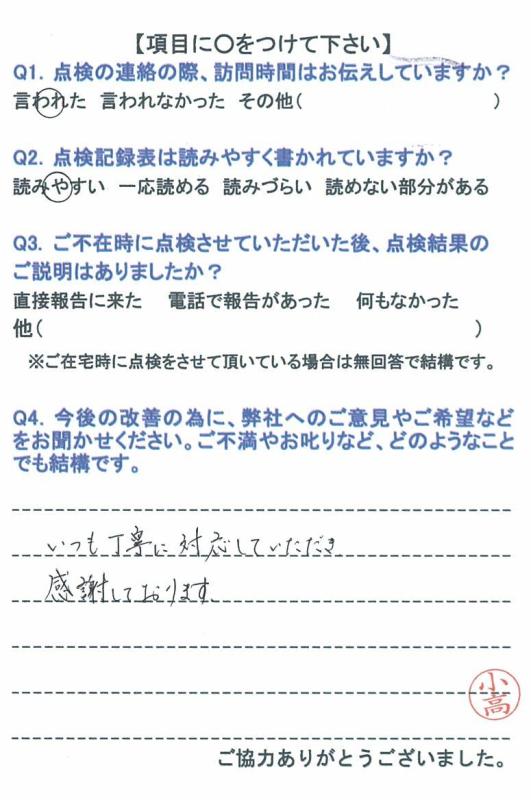 【項目に○をつけて下さい】
Q1. 点検の連絡の際、訪問時間はお伝えしていますか？
言われた 言われなかった その他( )
Q2. 点検記録表は読みやすく書かれていますか？
読みやすい 一応読める 読みづらい 読めない部分がある
Q3. ご不在時に点検させていただいた後、点検結果の
ご説明はありましたか？
直接報告に来た 電話で報告があった 何もなかった
他( )
※ご在宅時に点検をさせて頂いている場合は無回答で結構です。
Q4. 今後の改善の為に、弊社へのご意見やご希望など
をお聞かせください。ご不満やお叱りなど、どのようなこと
でも結構です。
いつも丁寧に対応していただき
感謝しております。
小
高
ご協力ありがとうございました。